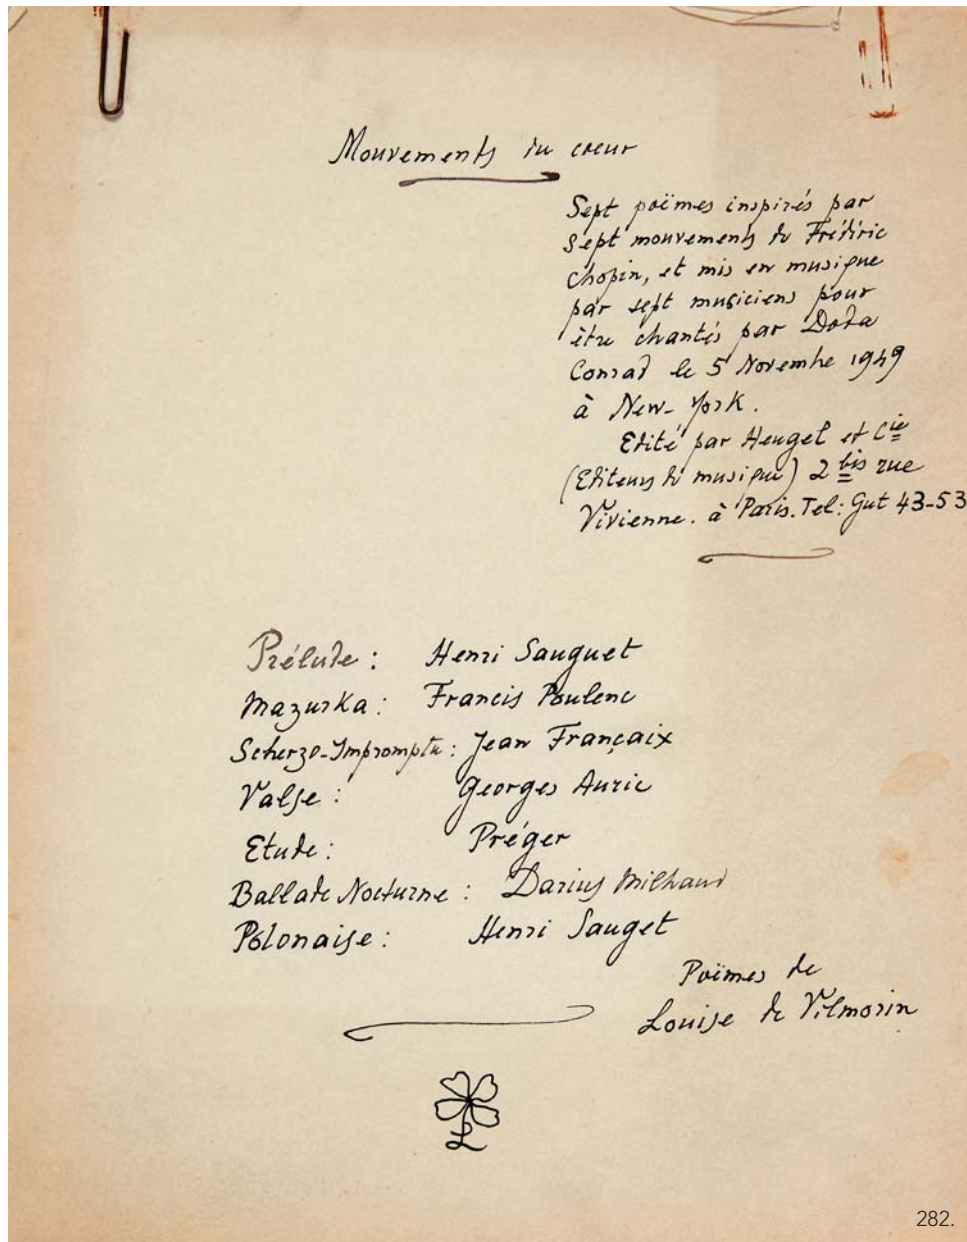 Mouvements du coeur
Sept poëmes inspirés par
sept mouvements de Frédéric
Chopin, et mis en musique
par sept musiciens pour
être chantés par Doda
Conrad le 5 Novembre 1949
à New-York.
Edité par Heugel et Cie
(Editeurs de musique) 2 bis rue
Vivienne. à Paris. Tel: Gut 43-53
Prélude: Henri Sauguet
Mazurka: Francis Poulenc
Scherzo-Impromptu: Jean Françaix
Valse: Georges Auric
Etude: Préger
Ballade Nocturne: Darius Milhaud
Polonaise: Henri Sauget
Poëmes de
Louise de Vilmorin
L
282.